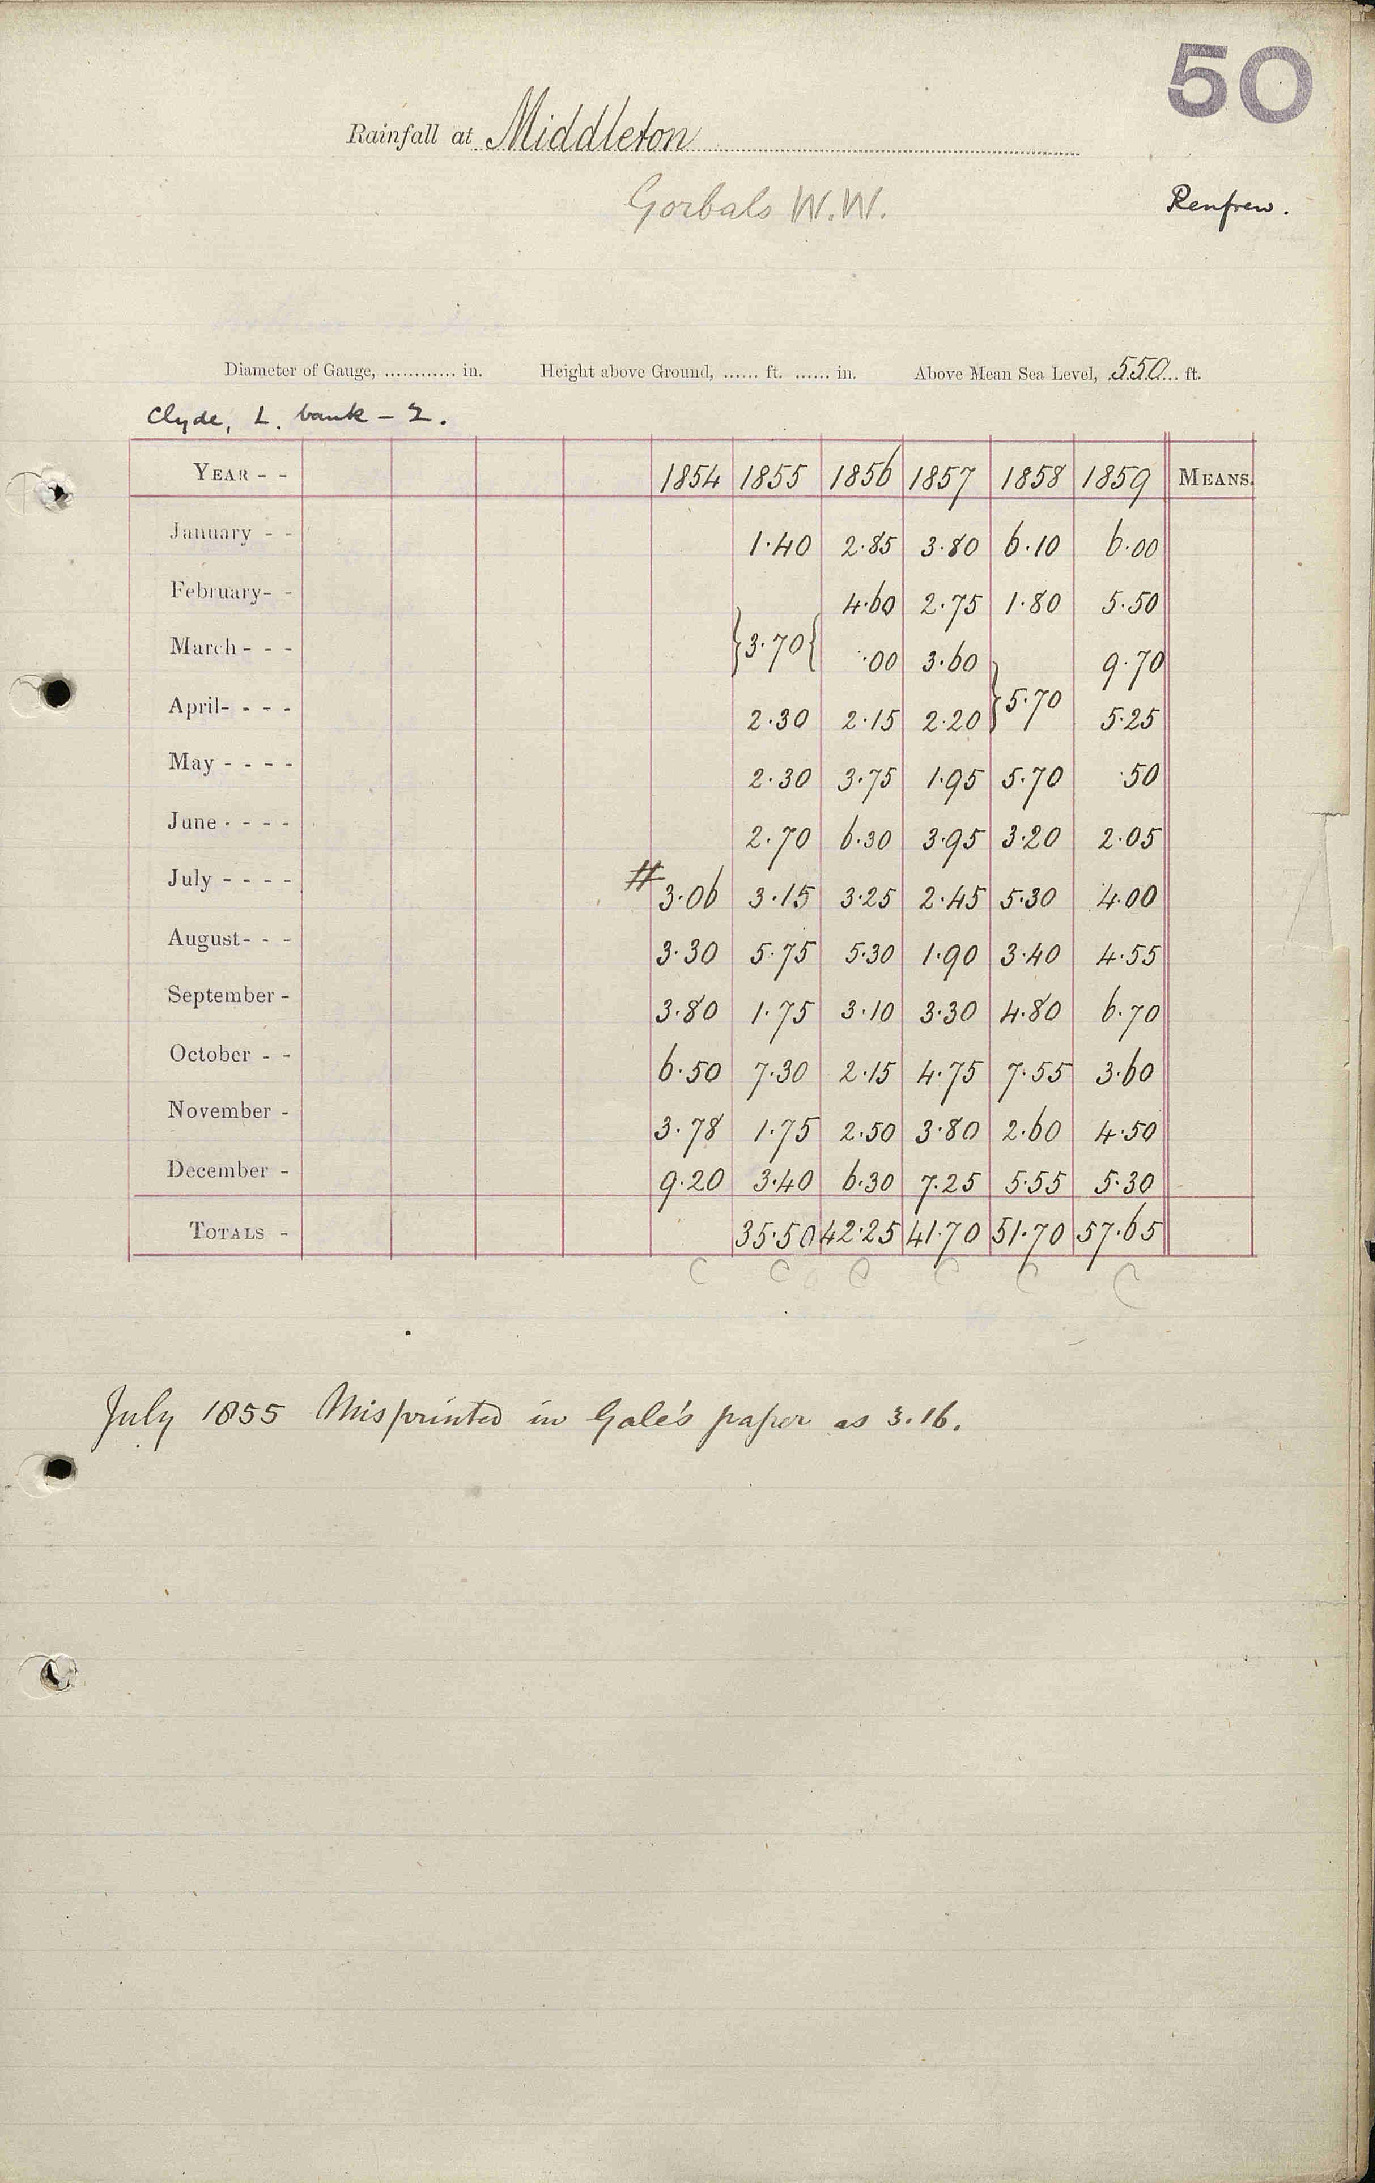 50
Rainfall at Middleton
Gorbals W.W.
Renfrew.
Diameter of Gauge, ............ in. Height above Ground, ...... ft. ...... in. Above Mean Sea Level, 550 ft.
Clyde, L. bank – 2.
YEAR - - 1854 1855 1856 1857 1858 1859 MEANS.
January - - 1.40 2.85 3.80 6.10 6.00
February- - 4.60 2.75 1.80 5.50
March - - - }3.70{ .00 3.60 9.70
April- - - - 2.30 2.15 2.20 }5.70 5.25
May - - - - 2.30 3.75 1.95 5.70 .50
June - - - - 2.70 6.30 3.95 3.20 2.05
July - - - - # 3.06 3.15 3.25 2.45 5.30 4.00
August- - - 3.30 5.75 5.30 1.90 3.40 4.55
September - 3.80 1.75 3.10 3.30 4.80 6.70
October - - 6.50 7.30 2.15 4.75 7.55 3.60
November - 3.78 1.75 2.50 3.80 2.60 4.50
December - 9.20 3.40 6.30 7.25 5.55 5.30
TOTALS - 35.50 42.25 41.70 51.70 57.65
C C C C C C
July 1855 Misprinted in Gale's paper as 3.16.